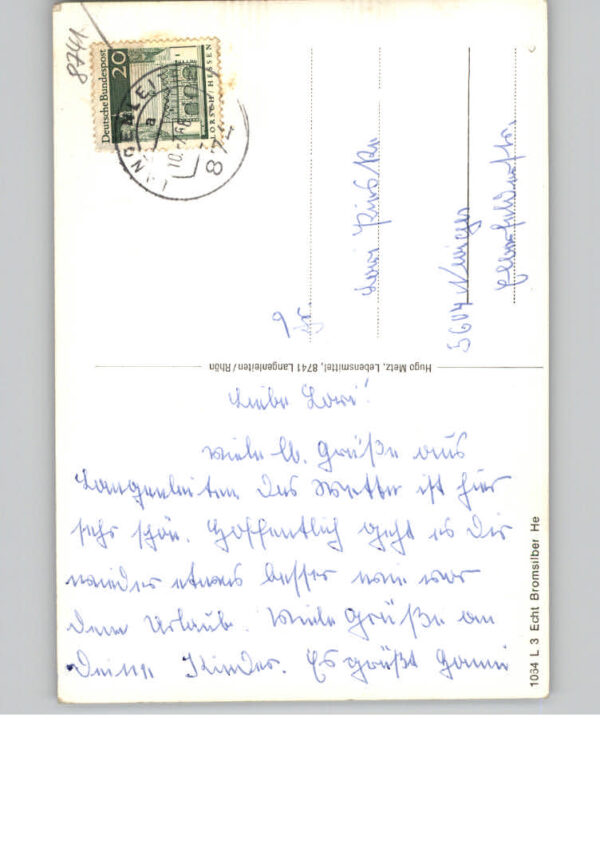 8741
Deutsche Bundespost
20
LORSCH / HESSEN
LANGENLEI
a
874
Fr.
Lori
5604
Hugo Metz, Lebensmittel, 8741 Langenleiten / Rhön
Liebe Lori!
viele lb. Grüße aus
Langenleiten Das Wetter ist hier
sehr schön. Hoffentlich geht es Dir
wieder etwas besser wie vor
dem Urlaub. Viele Grüße an
Deine Kinder. Es grüßt
1064 L 3 Echt Bromsilber He